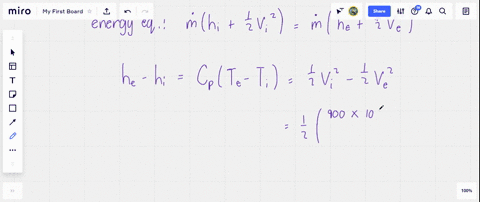 miro My First Board Share
energy eq.: ṁ(hᵢ + ½Vᵢ²) = ṁ(hₑ + ½Vₑ²)
hₑ - hᵢ = Cₚ(Tₑ - Tᵢ) = ½Vᵢ² - ½Vₑ²
= ½(900 × 10
100%